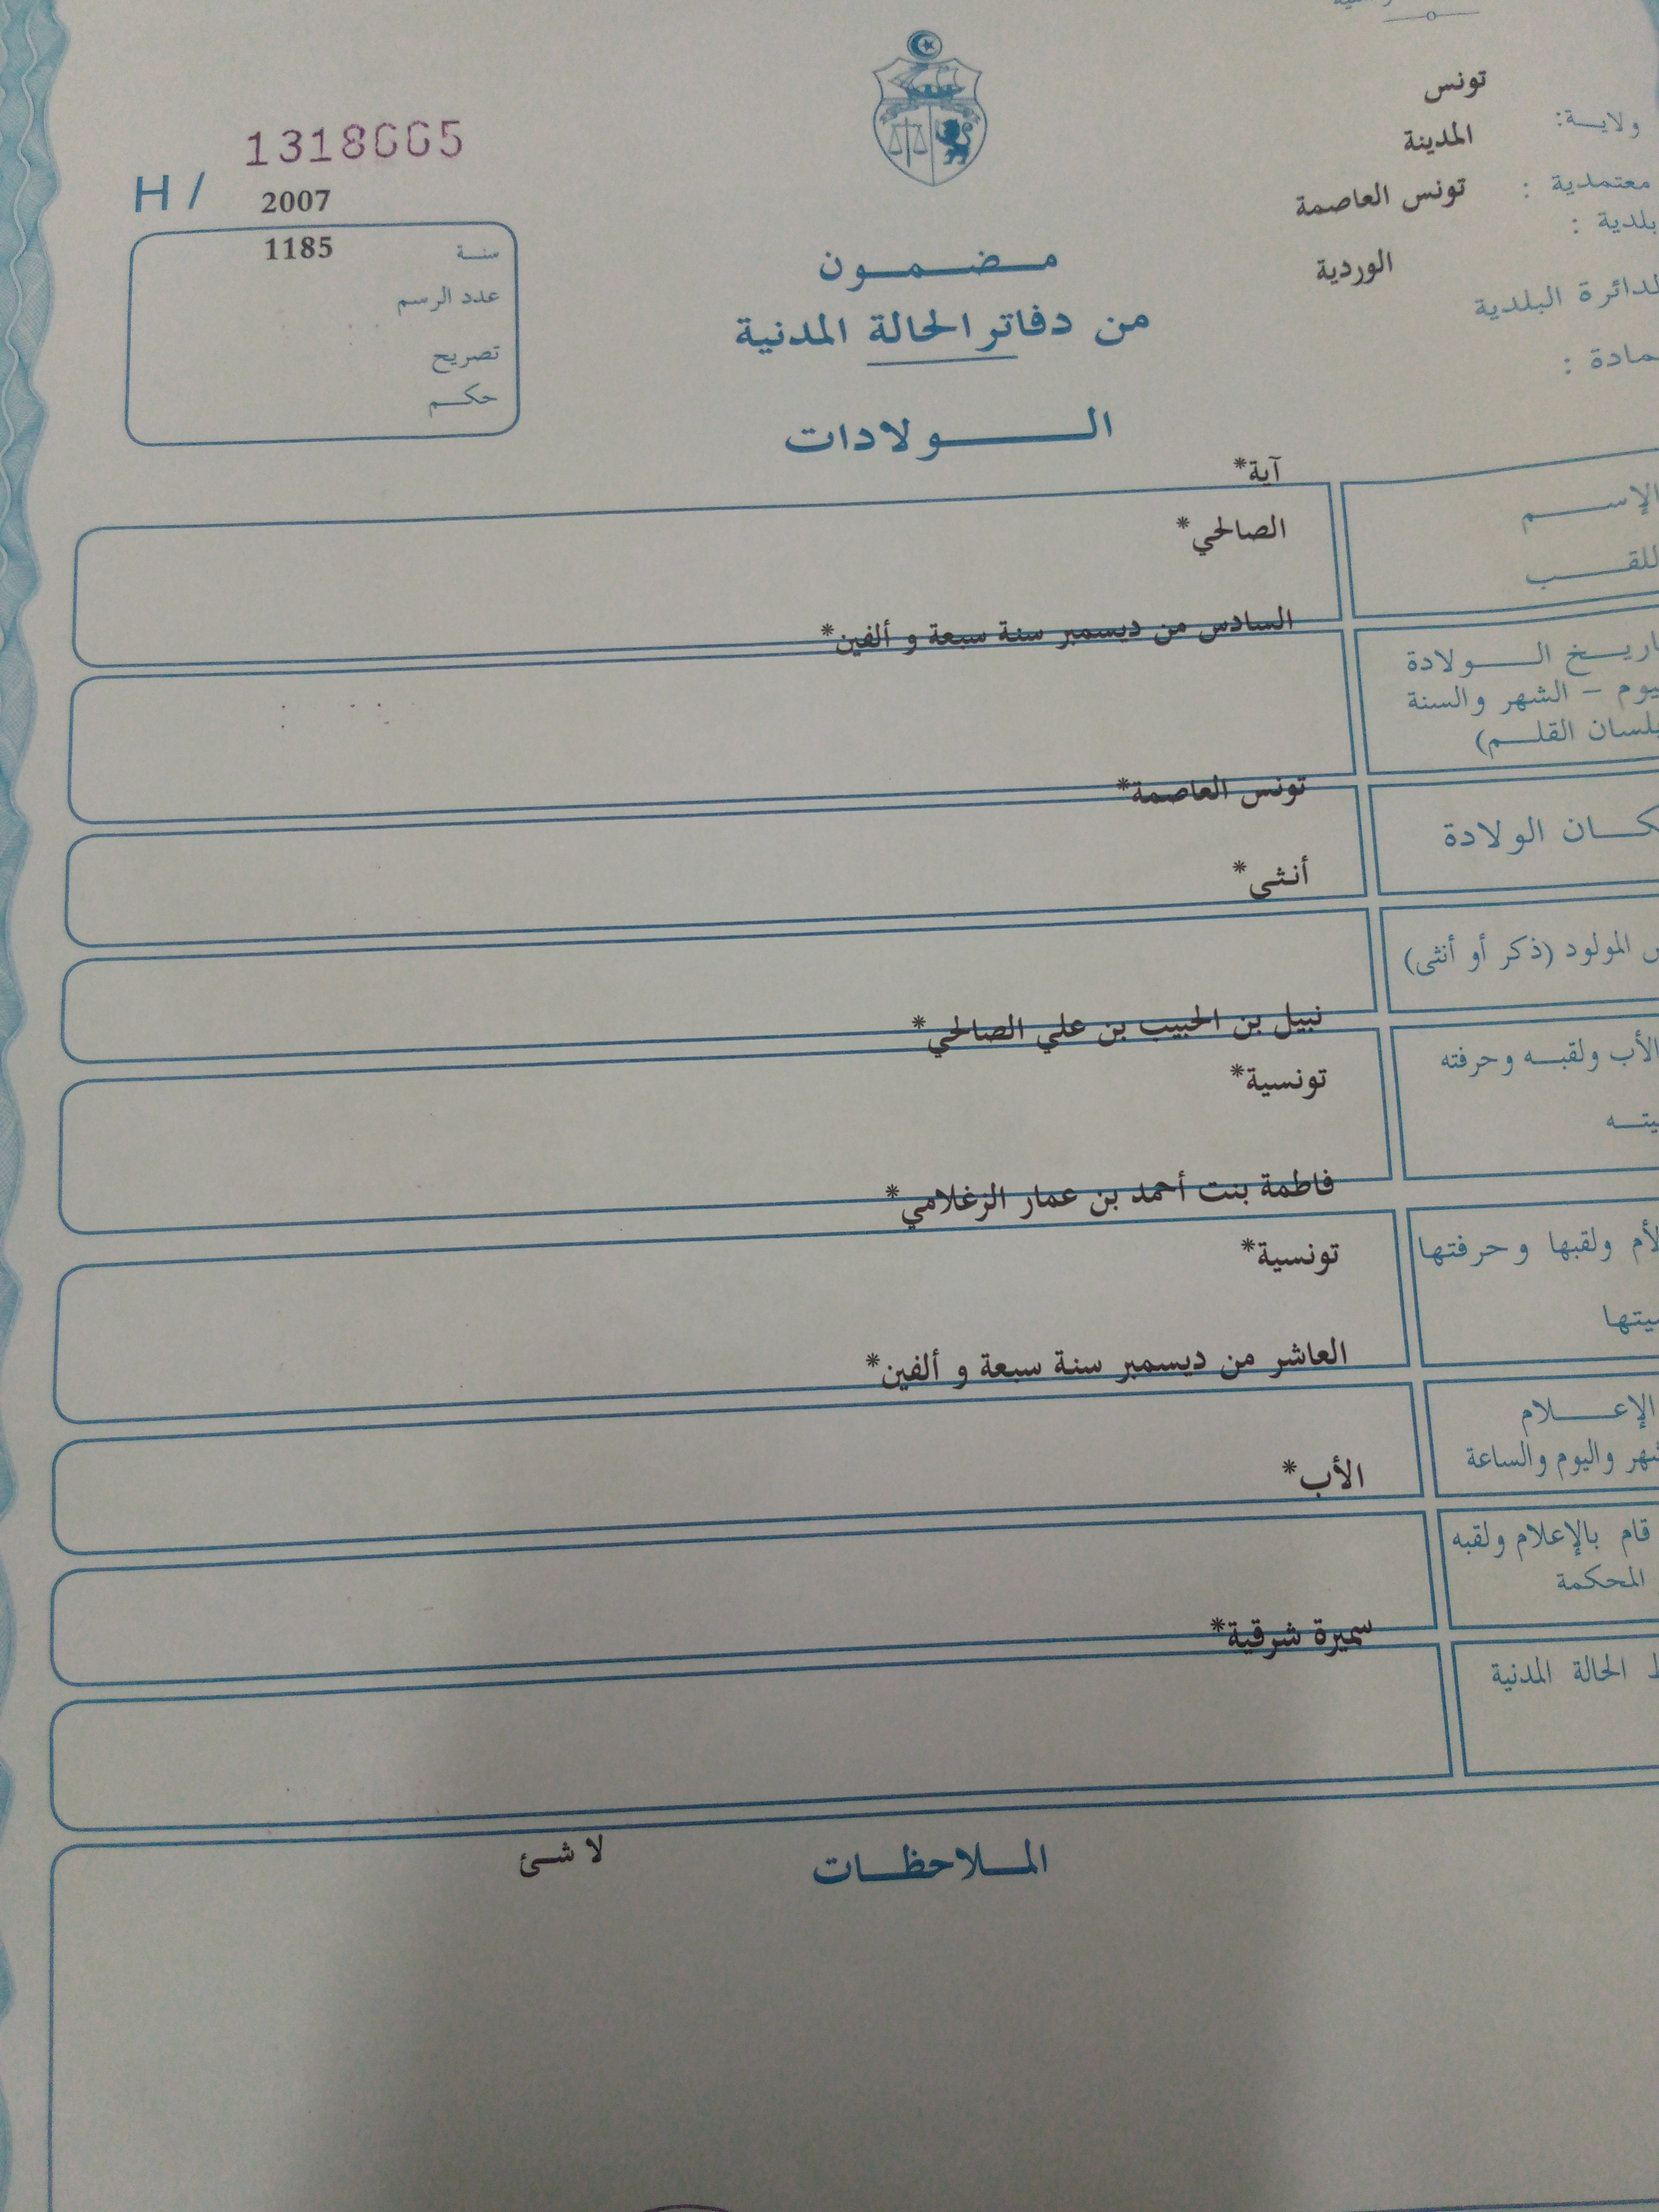 ولاية: تونس
معتمدية : المدينة
بلدية : تونس العاصمة
الدائرة البلدية الوردية
1318665
H / 2007
سنة 1185
عدد الرسم
تصريح
حكم
مضمون
من دفاتر الحالة المدنية
الولادات
الإسم آية*
اللقب الصالحي*
السادس من ديسمبر سنة سبعة و ألفين*
تاريخ الولادة
اليوم – الشهر والسنة
بلسان القلم)
تونس العاصمة*
مكان الولادة
أنثى*
المولود (ذكر أو أنثى)
نبيل بن الحبيب بن علي الصالحي*
الأب ولقبه وحرفته
تونسية*
فاطمة بنت أحمد بن عمار الزغلامي*
الأم ولقبها وحرفتها
تونسية*
العاشر من ديسمبر سنة سبعة و ألفين*
الإعلام
الشهر واليوم والساعة
الأب*
قام بالإعلام ولقبه
المحكمة
سميرة شرقية*
الحالة المدنية
الملاحظات لا شئ